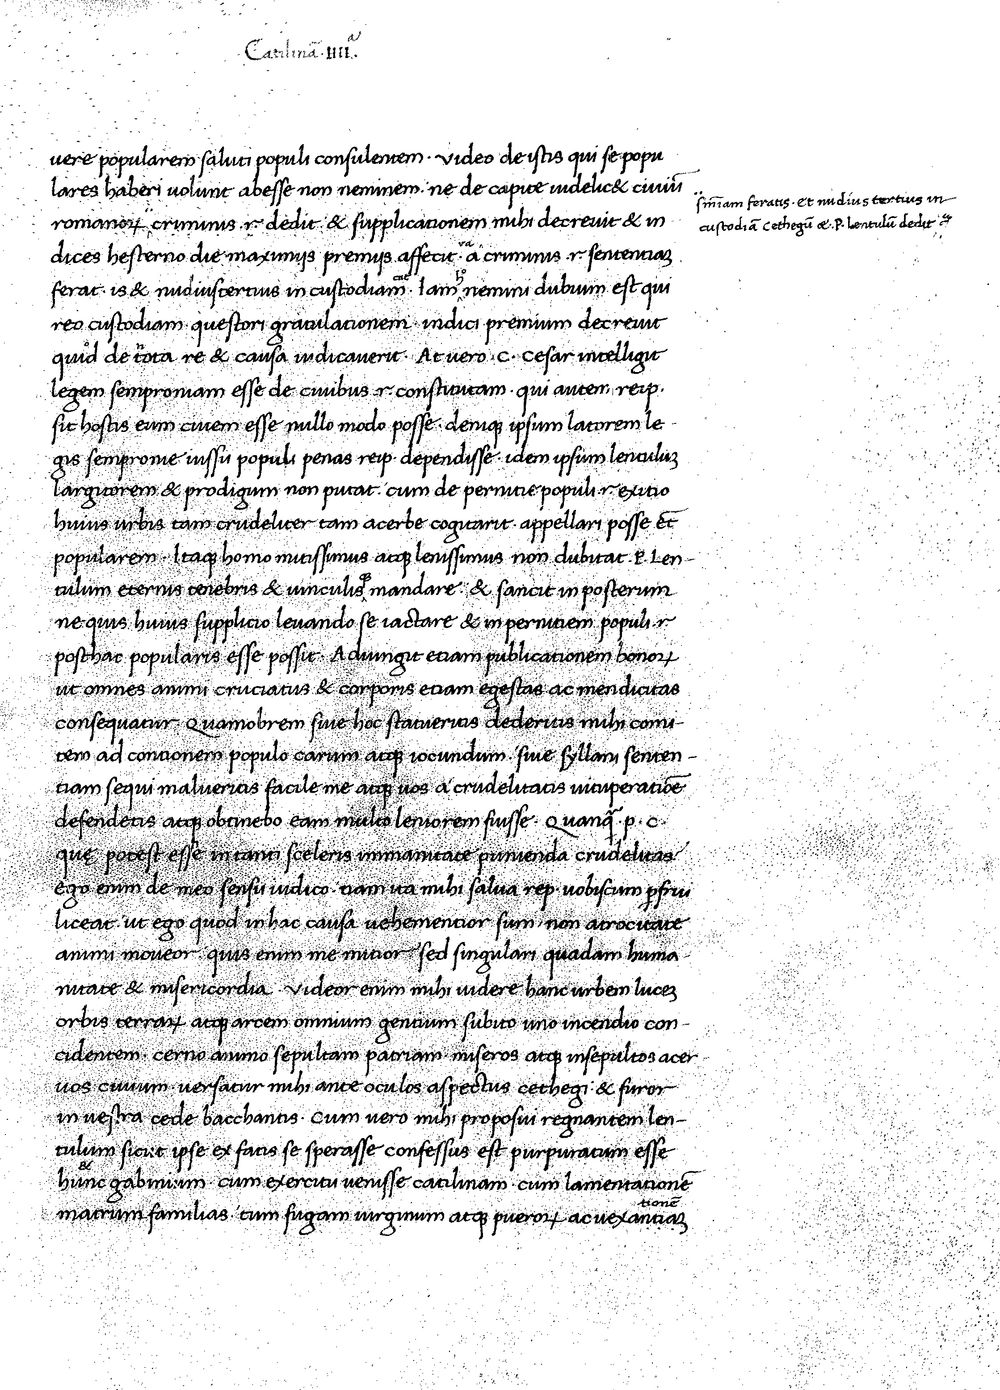 Catilinā · IIII ·ᵃ
uere popularem saluti populi consulentem · Video de istis qui se popu
lares haberi uolunt abesse non neminem · ne de capite uidelic& ciuiū
romanoꝝ criminis · r · dedit · & supplicationem mihi decreuit & in
s̄niam feratis · et nudius tertius in
custodiā Cethegū & · P · Lentulū dedit
dices hesterno die maximijs premijs affecit · a criminis · r · sententiaꝫ
ferat · is & nudiustertius in custodiam · Iam nemini dubium est qui
reo custodiam questori gratulationem · indici premium decreuit
quid de tota re & causa iudicauerit · At uero · C · Cesar intelligit
legem semproniam esse de ciuibus · r · constitutam · qui autem reip ·
sit hostis eum ciuem esse nullo modo posse · deniqꝫ ipsum latorem le -
gis sempronie iussu populi penas reip · dependisse · idem ipsum lentuluꝫ
largitorem & prodigum non putat · cum de pernitie populi · r · exitio
huius urbis tam crudeliter tam acerbe cogitarit · appellari posse et̄
popularem · Itaqꝫ homo mitissimus atqꝫ lenissimus non dubitat · P · Len -
tulum eternis tenebris & uinculis mandare · & sancit in posterum
ne quis huius supplicio leuando se iactare & in pernitiem populi · r
posthac popularis esse possit · Adiungit etiam publicationem bonoꝝ
ut omnes animi cruciatus & corporis etiam egestas ac mendicitas
consequatur · Quamobrem siue hoc statueritis dederitis mihi comi -
tem ad contionem populo carum atqꝫ iocundum · siue syllani senten -
tiam sequi malueritis facile me atqꝫ uos a crudelitatis uituperatiōe
defendetis atqꝫ obtinebo eam multo leniorem fuisse · Quanqꝫ̄ · p · c ·
quę potest esse in tanti sceleris immanitate punienda crudelitas
ego enim de meo sensu iudico · nam ita mihi salua rep · uobiscum ꝑfrui
liceat · ut ego quod in hac causa uehementior sum · non atrocitate
animi moueor · quis enim me mitior · sed singulari quadam huma -
nitate & misericordia · Videor enim mihi uidere hanc urbem luceꝫ
orbis terraꝝ atqꝫ arcem omnium gentium subito uno incendio con -
cidentem · cerno animo sepultam patriam · miseros atqꝫ insepultos acer -
uos ciuium · uersatur mihi ante oculos aspectus cethegi · & furor
in uestra cede bacchantis · Cum uero mihi proposui regnantem len -
tulum sicut ipse ex fatis se sperasse confessus est purpuratum esse
hunc gabinium · cum exercitu uenisse catilinam · cum lamentationē
tionē
matrum familias · tum fugam uirginum atqꝫ pueroꝝ ac uexantiaꝫ